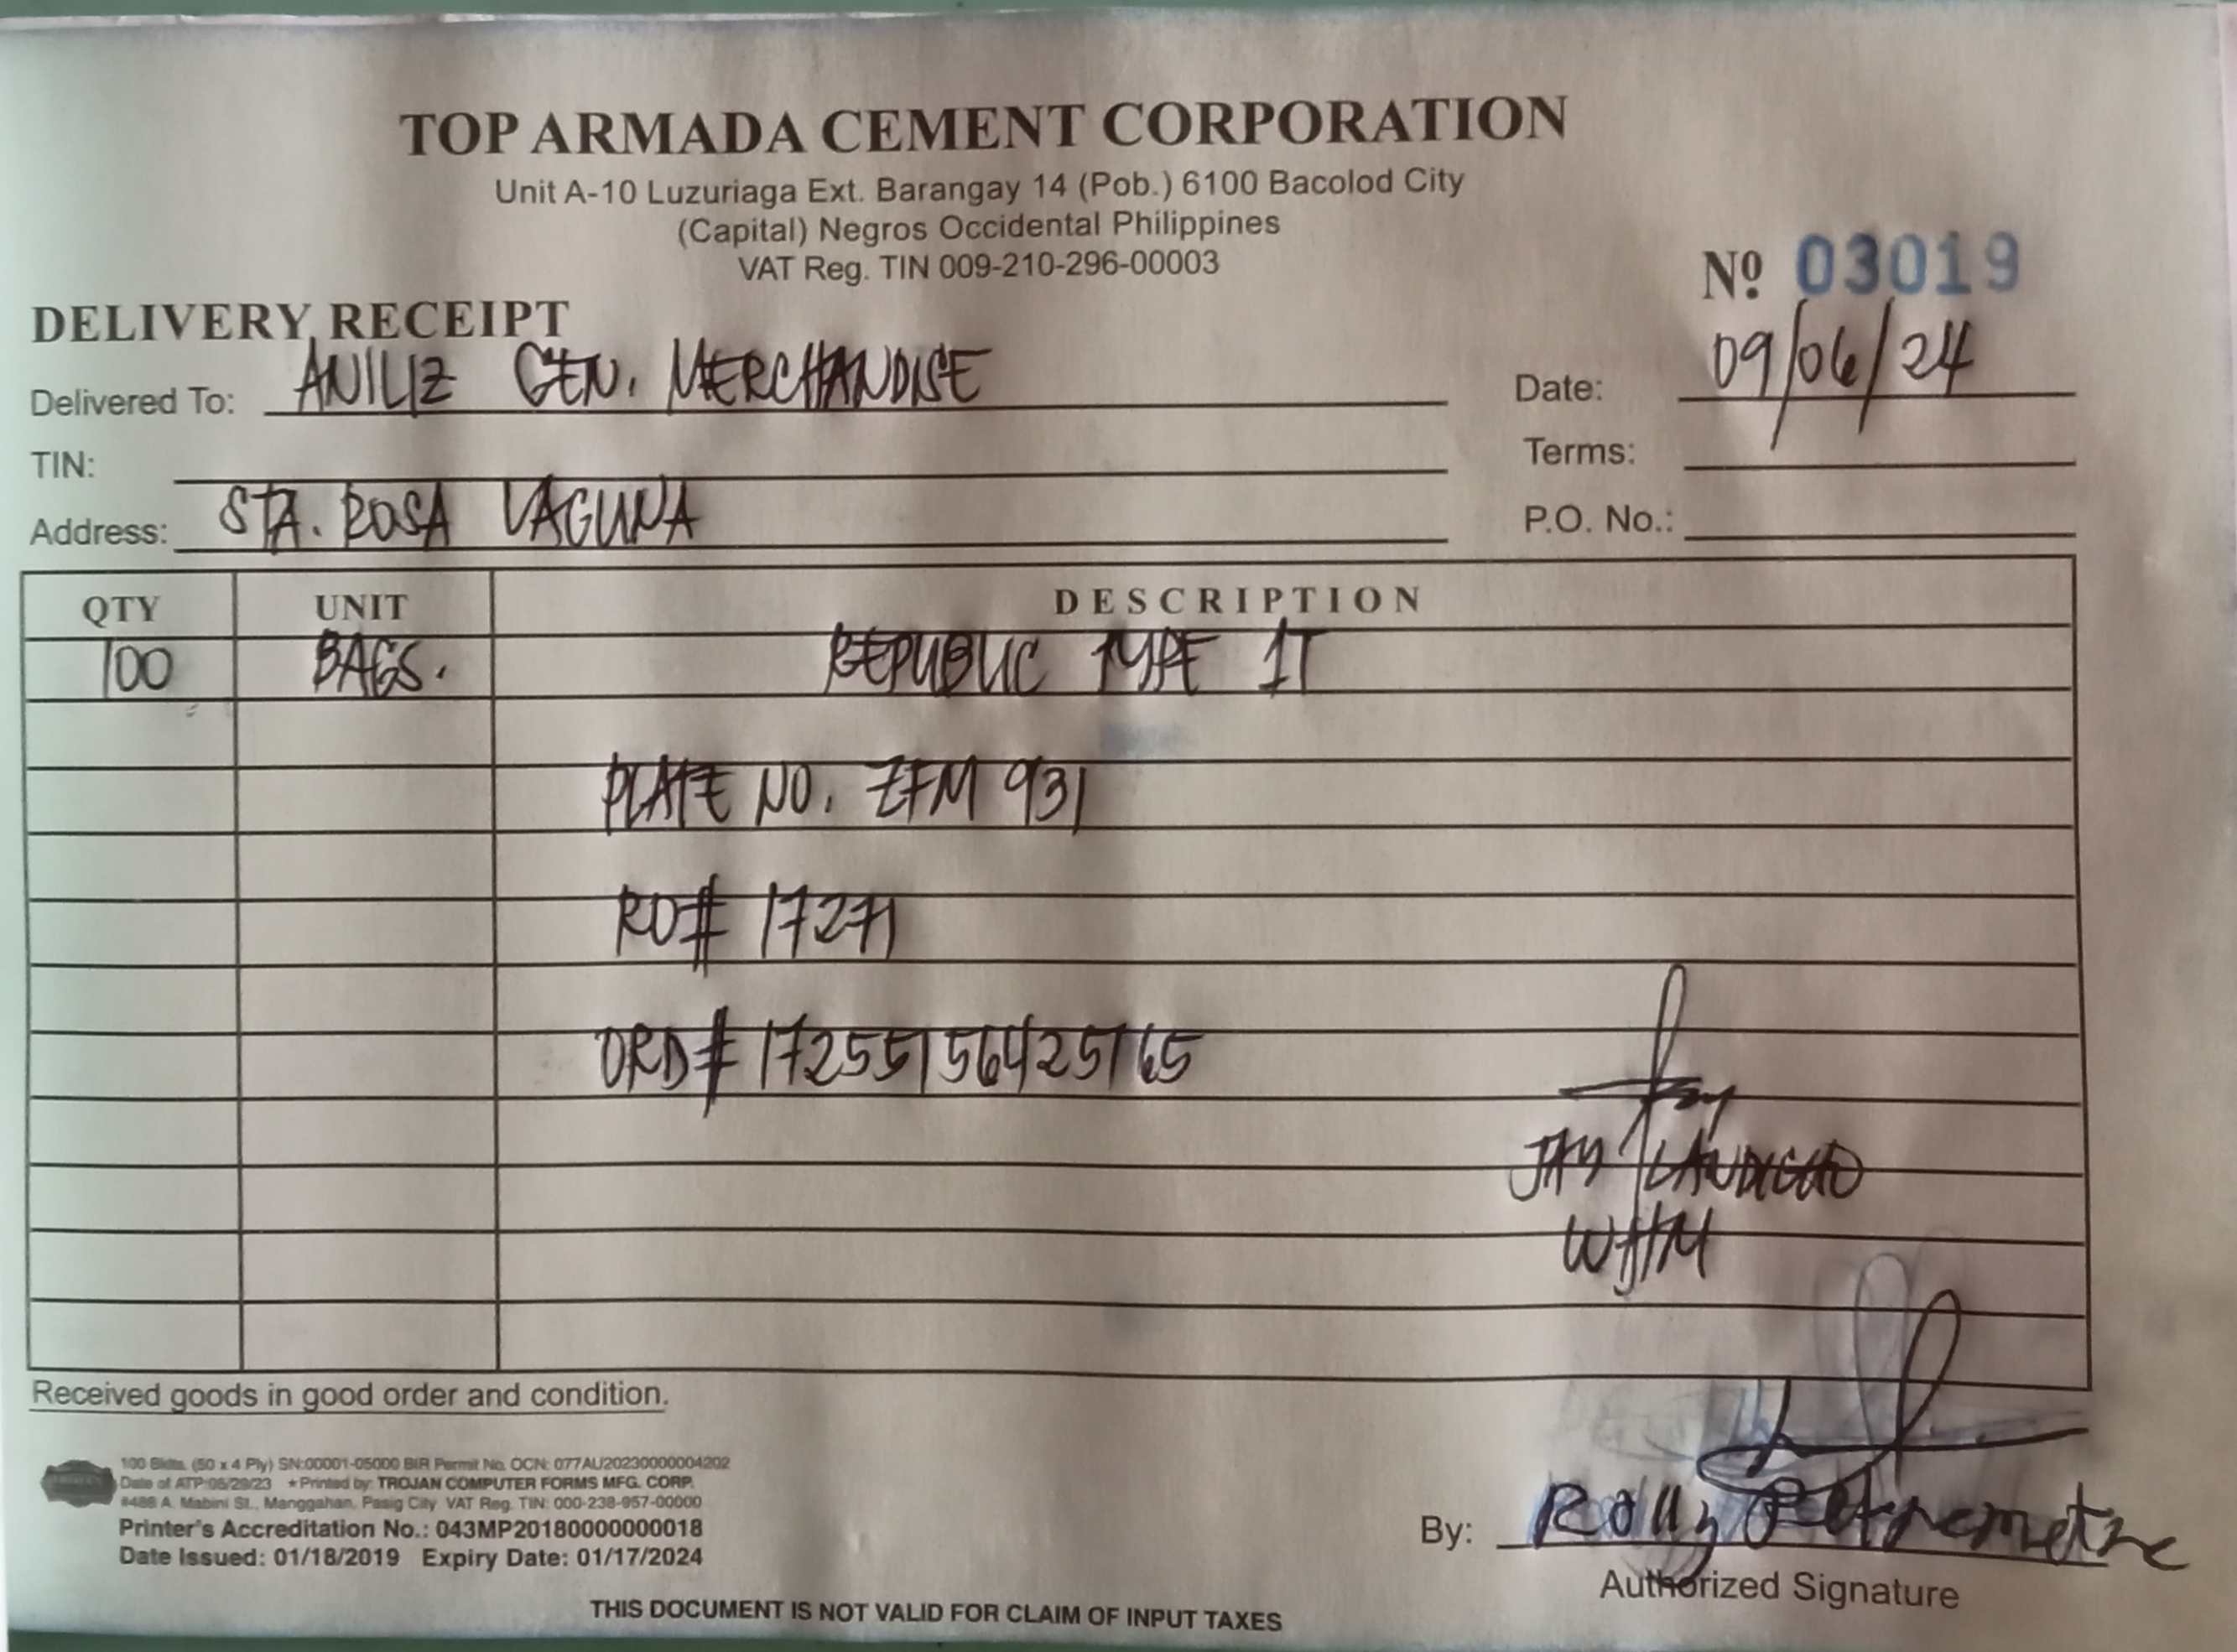 TOP ARMADA CEMENT CORPORATION
Unit A-10 Luzuriaga Ext. Barangay 14 (Pob.) 6100 Bacolod City
(Capital) Negros Occidental Philippines
VAT Reg. TIN 009-210-296-00003
Nº 03019
DELIVERY RECEIPT
Delivered To: ANILIZ GEN. MERCHANDISE
Date: 09/06/24
TIN:
Terms:
Address: STA. ROSA LAGUNA
P.O. No.:
QTY UNIT DESCRIPTION
100 BAGS. REPUBLIC TYPE 1T
PLATE NO. ZFM 931
RO# 17271
ORD# 17255156425765
JAY LANDICHO
WHM
Received goods in good order and condition.
100 Bklts. (50 x 4 Ply) SN:00001-05000 BIR Permit No. OCN: 077AU20230000004202
Date of ATP:06/29/23 ★Printed by: TROJAN COMPUTER FORMS MFG. CORP.
#486 A. Mabini St., Manggahan, Pasig City VAT Reg. TIN: 000-238-957-00000
Printer's Accreditation No.: 043MP20180000000018
Date Issued: 01/18/2019 Expiry Date: 01/17/2024
By: Rolly
Authorized Signature
THIS DOCUMENT IS NOT VALID FOR CLAIM OF INPUT TAXES